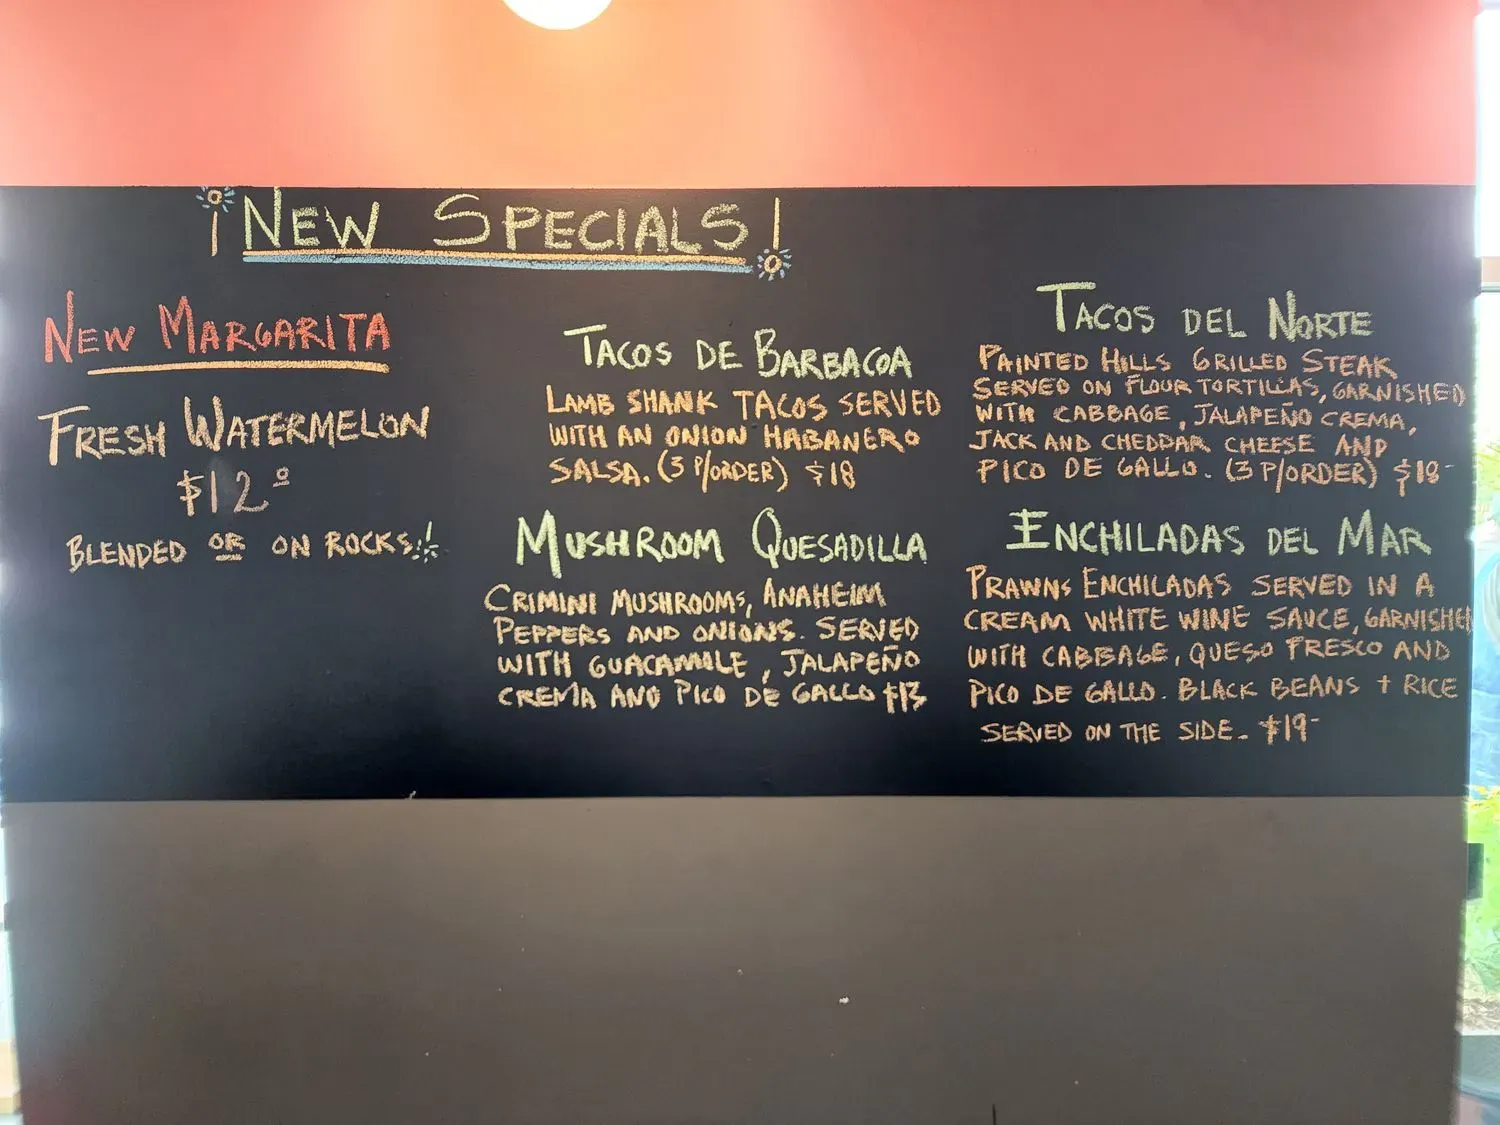 ¡NEW SPECIALS!
NEW MARGARITA
FRESH WATERMELON
$12.º
BLENDED OR ON ROCKS!
TACOS DE BARBACOA
LAMB SHANK TACOS SERVED
WITH AN ONION HABANERO
SALSA. (3 P/ORDER) $18
MUSHROOM QUESADILLA
CRIMINI MUSHROOMS, ANAHEIM
PEPPERS AND ONIONS. SERVED
WITH GUACAMOLE, JALAPEÑO
CREMA AND PICO DE GALLO $13
TACOS DEL NORTE
PAINTED HILLS GRILLED STEAK
SERVED ON FLOUR TORTILLAS, GARNISHED
WITH CABBAGE, JALAPEÑO CREMA,
JACK AND CHEDDAR CHEESE AND
PICO DE GALLO. (3 P/ORDER) $18-
ENCHILADAS DEL MAR
PRAWNS ENCHILADAS SERVED IN A
CREAM WHITE WINE SAUCE, GARNISHED
WITH CABBAGE, QUESO FRESCO AND
PICO DE GALLO. BLACK BEANS + RICE
SERVED ON THE SIDE. $19-